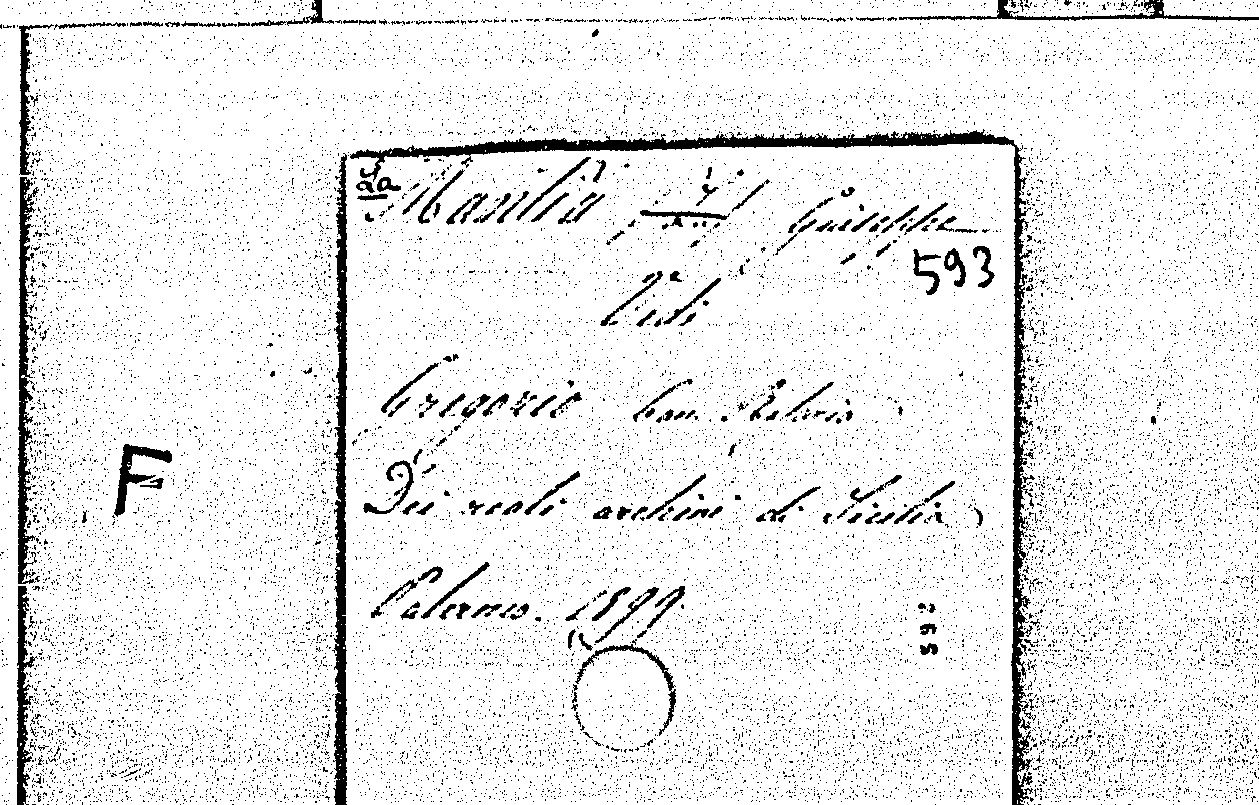 La Mantia Giuseppe
593
Vedi
Gregorio Can. Rosario
Dei reali archivi di Sicilia
Palermo. 1899
593
F